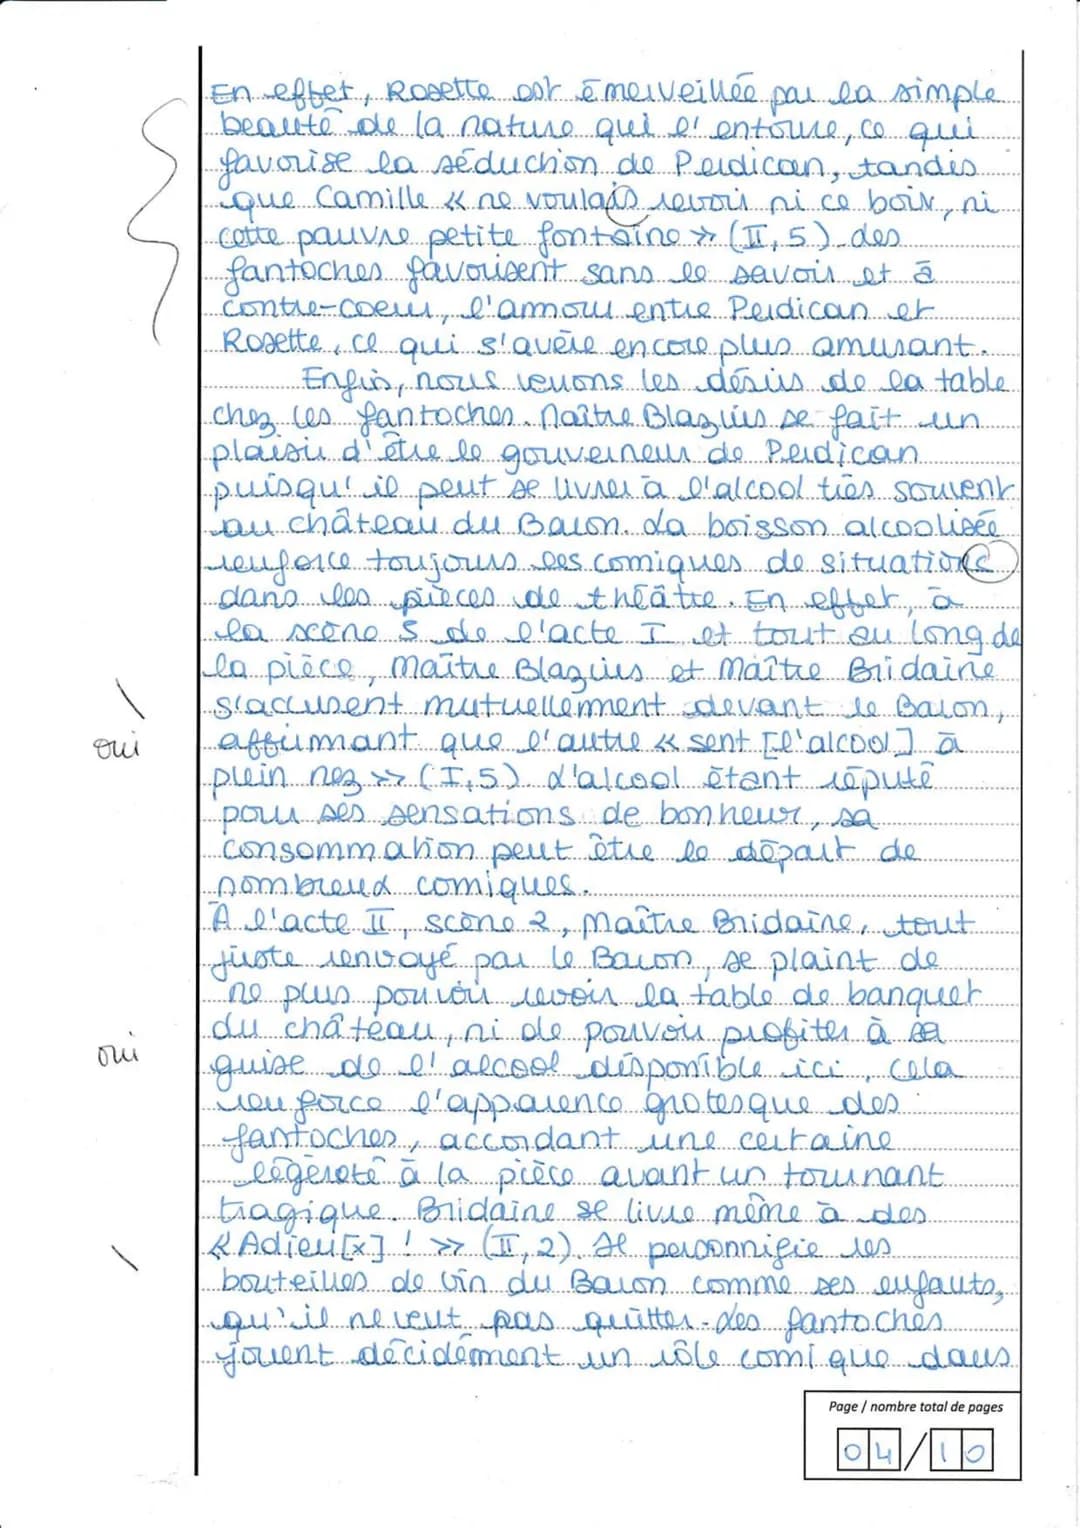 En effet, Rosette est émerveillée par la simple
beauté de la nature qui l'entoure, ce qui
favorise la séduction de Perdican, tandis
que Camille « ne voulais revoir ni ce bois, ni
cette pauvre petite fontaine » (II, 5). Les
fantoches favorisent sans le savoir et à
contre-coeur, l'amour entre Perdican et
Rosette, ce qui s'avère encore plus amusant.
Enfin, nous verrons les désirs de la table
chez les fantoches. Maître Blazius se fait un
plaisir d'être le gouverneur de Perdican
puisqu'il peut se livrer à l'alcool très souvent
au château du Baron. La boisson alcoolisée
renforce toujours les comiques de situations
dans les pièces de théâtre. En effet, à
la scène 5 de l'acte I et tout au long de
la pièce, Maître Blazius et Maître Bridaine
s'accusent mutuellement devant le Baron,
oui
affirmant que l'autre « sent [l'alcool] à
plein nez » (I,5). L'alcool étant réputé
pour ses sensations de bonheur, sa
consommation peut être le départ de
nombreux comiques.
À l'acte II, scène 2, Maître Bridaine, tout
juste renvoyé par le Baron, se plaint de
ne plus pouvoir revoir la table de banquet
du château, ni de pouvoir profiter à sa
oui
guise de l'alcool disponible ici, cela
renforce l'apparence grotesque des
fantoches, accordant une certaine
légèreté à la pièce avant un tournant
tragique. Bridaine se livre même à des
« Adieu[x] ! » (II, 2). Il personnifie les
bouteilles de vin du Baron comme ses enfants,
qu'il ne veut pas quitter. Les fantoches
jouent décidément un rôle comique dans
Page / nombre total de pages
04/10